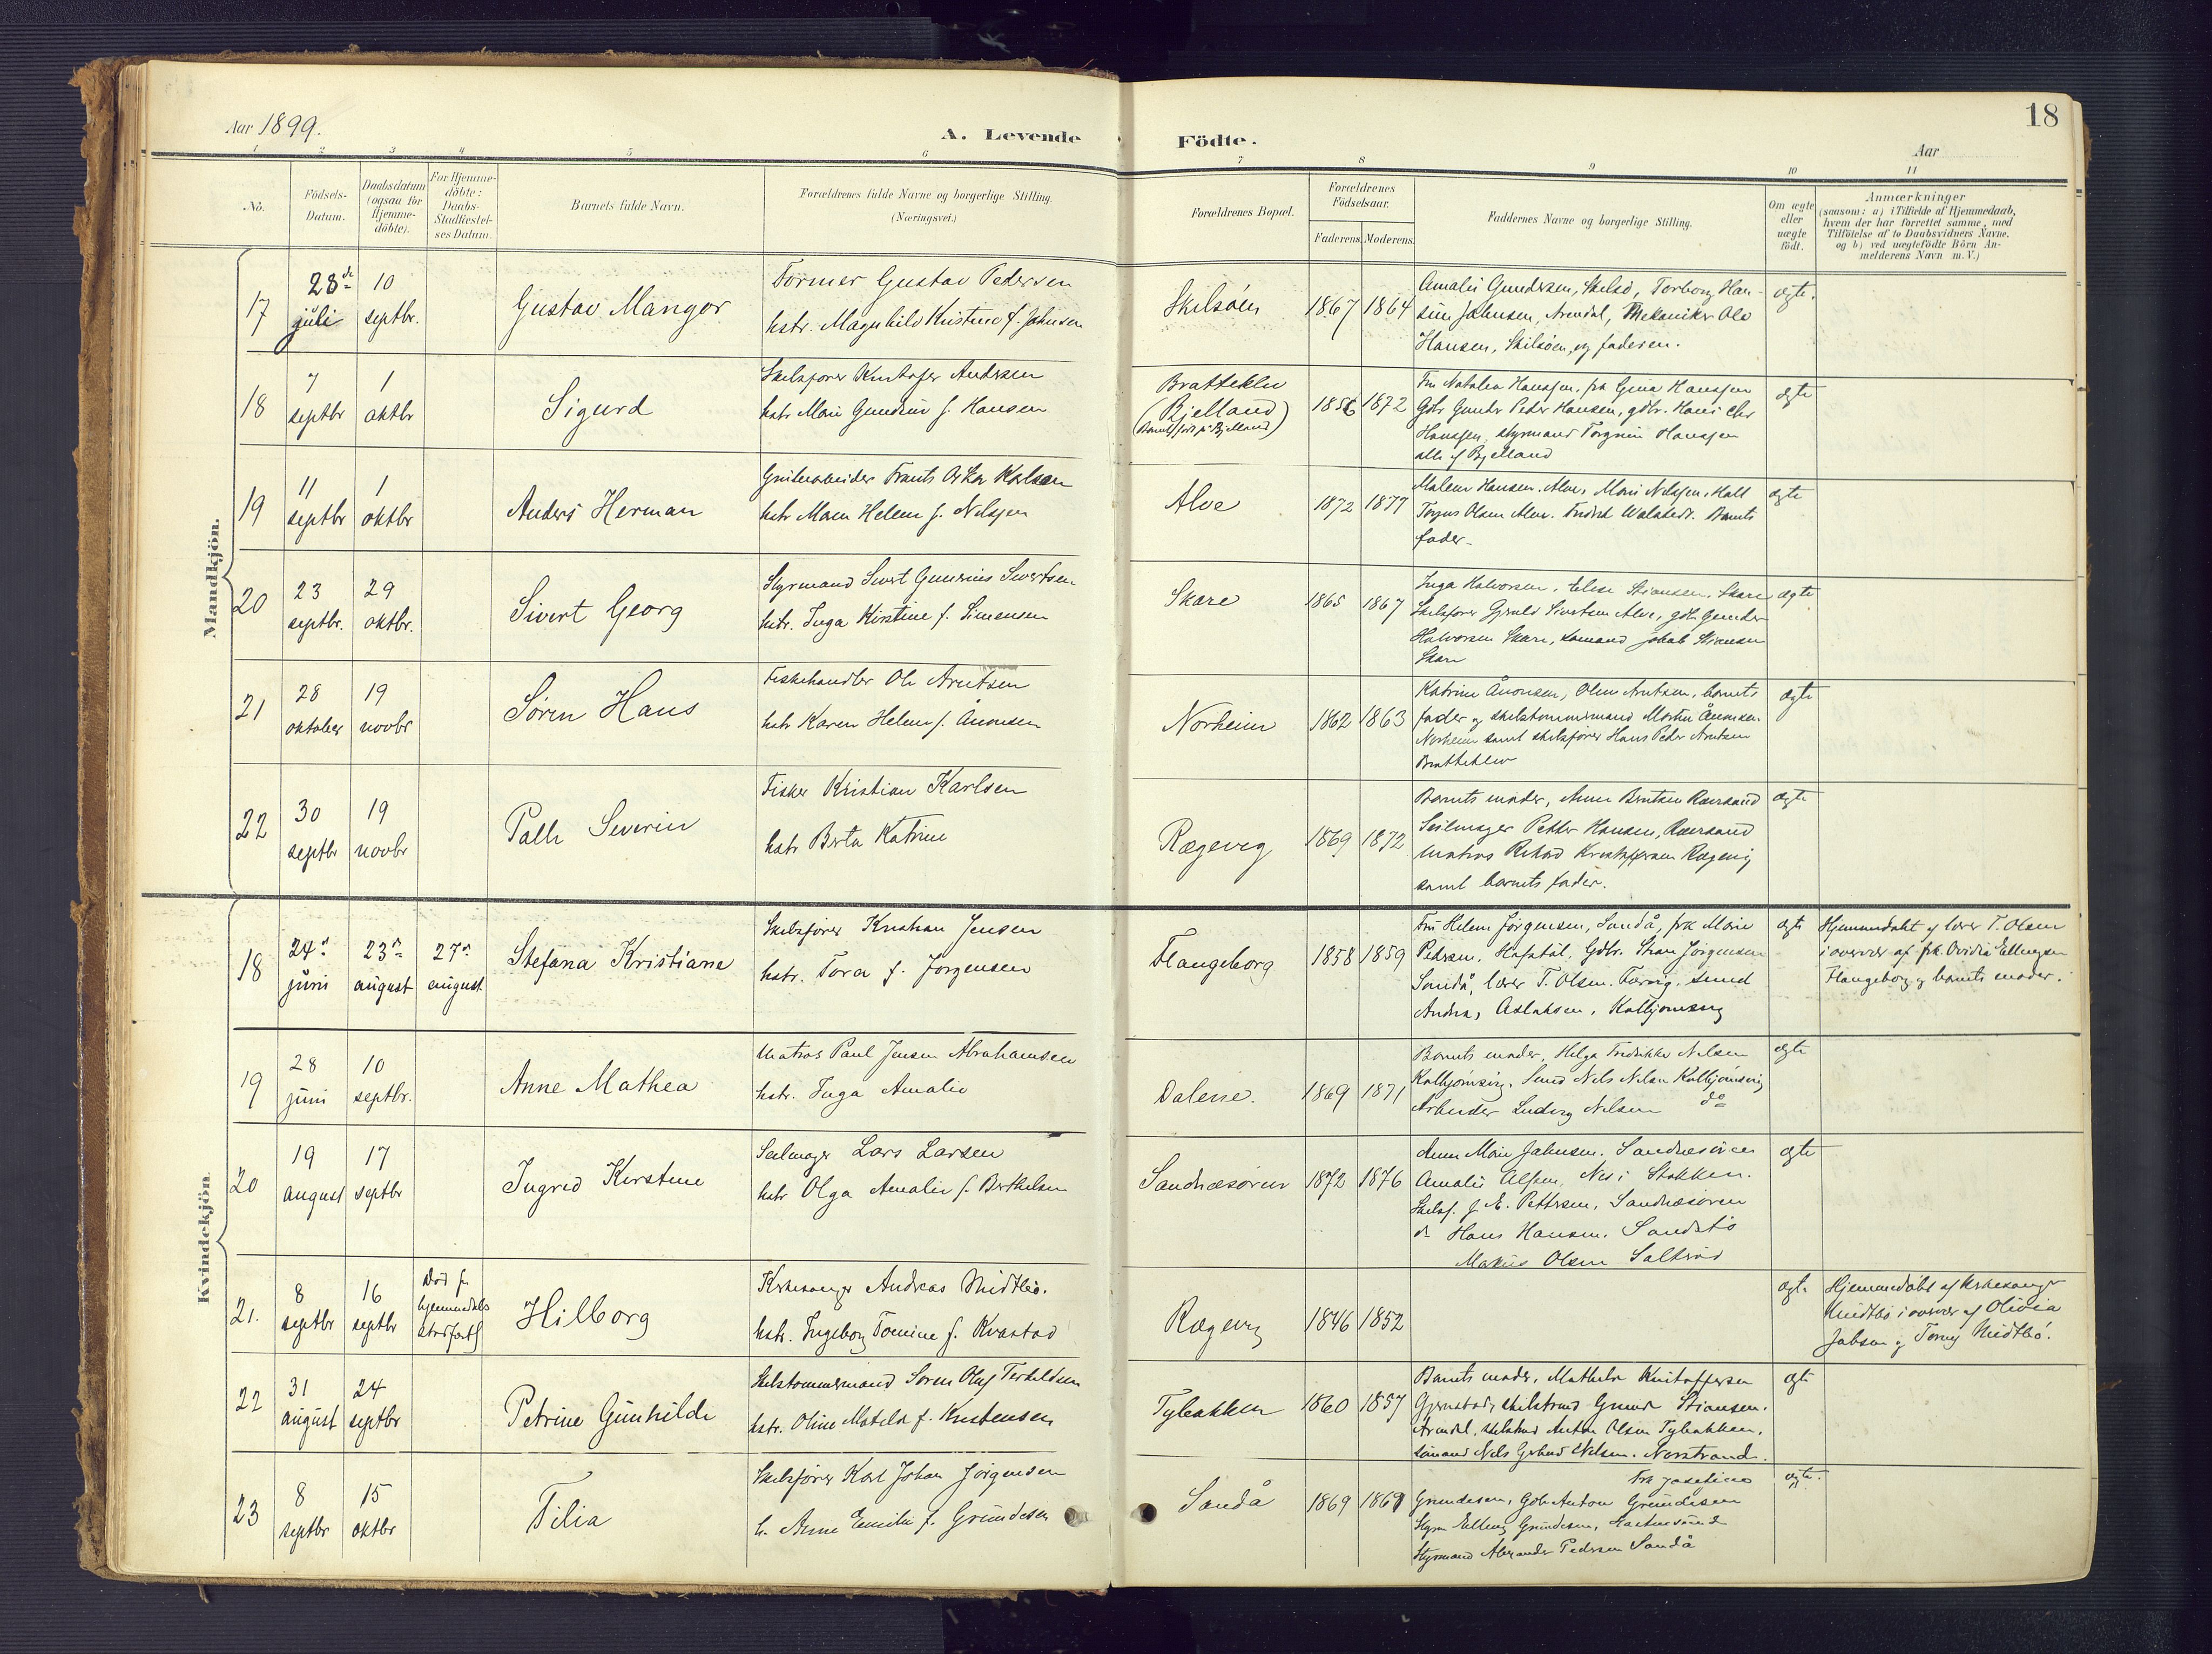 Aar 1899.
A. Levende Födte.
18
Aar
1 2 3 4 5 6 7 8 9 10 11
No.
Födsels-Datum.
Daabsdatum (ogsaa for Hjemme-döbte).
For Hjemme-döbte: Daabs-Stadfæstel-ses Datum.
Barnets fulde Navn.
Forældrenes fulde Navne og borgerlige Stilling.
(Næringsvei.)
Forældrenes Bopæl.
Forældrenes Födselsaar.
Faderens. Moderens.
Faddernes Navne og borgerlige Stilling.
Om ægte eller uægte födt.
Anmærkninger
(saasom: a) i Tilfælde af Hjemmedaab,
hvem der har forrettet samme, med
Tilföielse af to Daabsvidners Navne.
og b) ved uægtefödte Börn An-
melderens Navn m. V.)
Mandkjön.
17
28de juli
10 septbr.
Gustav Mangor
Former Gustav Pedersen
hstr. Magnhild Kristine f. Johnsen
Skilsöen
1867 1864
Amalie Gundersen, Skilsö, Torborg Han-
sine Johnsen, Arendal, Mekaniker Ole
Hansen, Skilsöen, og faderen.
ægte.
18
7 septbr
1 oktbr
Sigurd
Skibsförer Kristofer Andersen
hstr Marie Gundine f. Hansen
Bratteklev
(Bjelland)
(Barnet född på Bjelland)
1856 1872
Fru Natalia Hanssen, frk Gina Hanssen
Gdbr Gunder Peder Hansen, gdbr. Hans
Hanssen, styrmand Torgrim Hanssen
alle af Bjelland
ægte
19
11 septbr
1 oktbr
Anders Herman
Grubearbeider Frants Oskar Karlsen
hstr Maren Helene f. Nilssen
Alve
1872 1877
Malene Hansen, Alve, Marie Nilssen,
Torjus Olsen Alve. Barnets
fader.
ægte
20
23 septbr.
29 oktbr.
Sivert Georg
Styrmand Sivert Gunerius Sivertsen
hstr. Inga Kirstine f. Simonsen
Skare
1865 1867
Inga Halvorsen, Elise Stiansen, Skare
Skibsförer Sivertsen Alve, gdb. Gunder
Halvorsen Skare, sömand Jakob Stiansen
Skare
ægte
21
28 oktober
19 novbr
Sören Hans
Fiskehandler Ole Arntsen
hstr Karen Helene f. Ånonsen
Norheim
1862 1863
Katrine Ånonsen, Oline Arntsen, barnets
fader og skibstömmermand Morten Ånonsen
Norheim samt skibsförer Hans Peder Arntsen
Bratteklev
ægte
22
30 septbr
19 novbr
Palle Severin
Fisker Kristian Karlsen
hstr Berta Katrine
Rægevig
1869 1872
Barnets moder, Anne Berntsen Revesand
Seilmager Petter Hansen, Revesand
matros Rikard Kristoffersen Rægevig
samt barnets fader.
ægte
Kvindekjön.
18
24de juni
23de august
27de august
Stefana Kristiane
Skibsförer Kristian Jensen
hstr. Tora f. Jorgensen
Flangeborg
1858 1859
Fru Helene Jörgensen, Sandå, frk Marie
Pedersen, Gdbr. Jörgensen
Sandå, lærer T. Olsen, Færvig,
Andreas Aslaksen, Kolbjörnsvig
ægte
Hjemmedöbt af lærer T. Olsen
i overvær af frk. Ovidia Ellingsen
Flangeborg og barnets moder.
19
28 juni
10 septbr.
Anne Mathea
Matros Paul Jensen Abrahamsen
hstr. Inga Amalie
Dalene.
1869 1871
Barnets moder, Helga Fredrikke Nilsen
Kolbjörnsvig, Nels Nilsen Kolbjörnsvig
Arbeider Ludvig Nilsen do
ægte
20
19 august
17 septbr
Ingrid Kirstine
Seilmager Lars Larsen
hstr Olga Amalie f. Berthelsen
Sandnæsören
1872 1876
Anne Marie Johnsen, Sandnæsören
Amalie Alfsen, Nes i Stokken.
Skibsf. J. E. Pettersen, Sandnæsören
do Hans Hansen, Sandstö
Makus Olsen Saltröd
ægte
21.
8 septbr
16 septbr
Död f. hjemmedaabs stadfæst
Hilborg
Kirkesanger Andreas Midtbö.
hstr. Ingeborg Tomine f. Kvastad
Rægevig
1846 1852
ægte
Hjemmedöbt af kirkesanger
Midtbö i overvær af Olivia
Jakobsen og Tomy Midtbö.
22
31 august
24 septbr
Petrine Gunhilde
Skibstömmermand Sören Olaf Terkeldsen
hstr. Oline Matilde f. Kristensen
Tybakken
1860 1857
Barnets moder, Mathilde Kristoffersen
Stiansen,
Arendal, Anton Olsen Tybakken,
sömand Nels Nilsen, Norstrand.
ægte
23
8 septbr
15 oktbr
Tilia
Skibsförer Karl Johan Jörgensen
h. Anne Emilie f. Gundersen
Sandå
1869 1869
Frk Josefine
Gundersen, Gdb Anton Gundersen
Styrm Elling Gundersen,
Styrmand Alexander Pedersen Sandå
ægte.